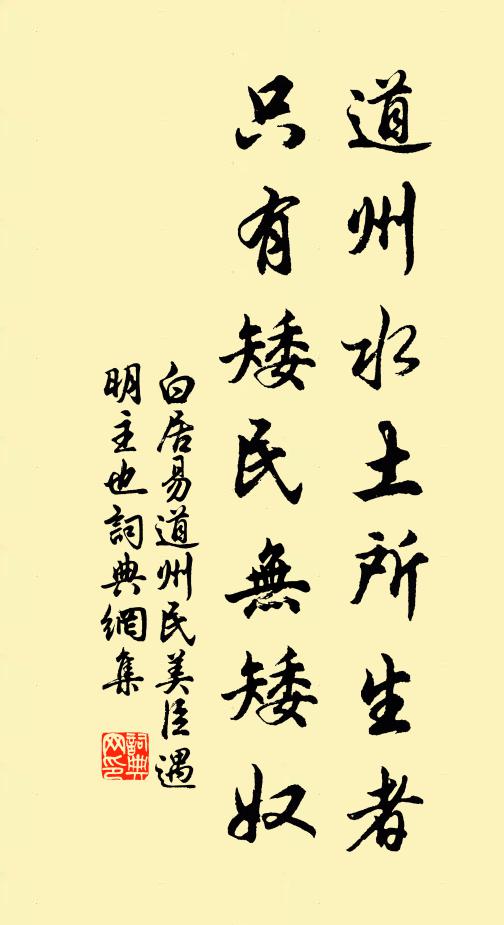 道州水土所生者
只有矮民無矮奴
白居易道州民美臣遇
明主也詞典網集
詞典
网印